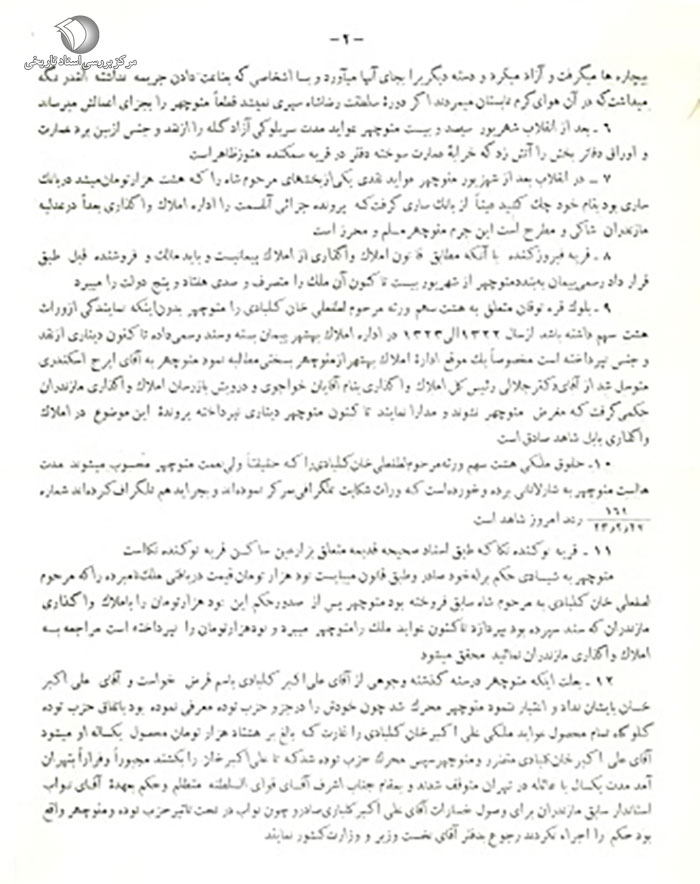 مرکز بررسی اسناد تاریخی
-۲-
بیچاره ها میگرفت و آزاد میکرد و دسته دیگر را بجای آنها میآورد و بسا اشخاصی که بضاعت دادن جریمه نداشته آنقدر نگه
میداشت که در آن هوای گرم تابستان میمردند اگر دورهٔ سلطنت رضاشاه سپری نمیشد قطعاً منوچهر را بجزای اعمالش میرساند
۶ ـ بعد از انقلاب شهریور سیصد و بیست منوچهر عواید مدت سربلوکی آزاد گله را از نقد و جنس از بین برد عمارت
و اوراق دفاتر بخش را آتش زد که خرابهٔ عمارت سوخته دفتر در قریه سمکنده هنوز ظاهر است
۷ ـ در انقلاب بعد از شهریور منوچهر عواید نقدی یکی از بخشهای مرحوم شاه را که هشت هزار تومان میشد در بانک
ساری بود بنام خود چک کشید عیناً از بانک ساری گرفت که پرونده جزائی آنقسمت را اداره املاک واگذاری بعداً در عدلیه
مازندران شاکی و مطرح است این جرم منوچهر مسلم و محرز است
۸ ـ قریه فیروزکنده با آنکه مطابق قانون املاک واگذاری از املاک پیمانیست و باید مالک و فروشنده قبل طبق
قرار داد رسمی پیمان به‌بندد منوچهر از شهریور بیست تا کنون آن ملک را متصرف و صدی هفتاد و پنج دولت را میبرد
۹ ـ بلوک قره توقان متعلق به هشت سهم ورثه مرحوم لطفعلی خان کلبادی را منوچهر بدون اینکه نمایندگی از وراث
هشت سهم داشته باشد از سال ۱۳۲۲ الی ۱۳۲۳ در اداره املاک بهشهر پیمان بسته و سند رسمی داده تا کنون دیناری از نقد
و جنس نپرداخته است مخصوصاً یک موقع ادارهٔ املاک بهشهر از منوچهر بسختی مطالبه نمود منوچهر به آقای ایرج اسکندری
متوسل شد از آقای دکتر جلالی رئیس کل املاک واگذاری بنام آقایان خواجوی و درویش بازرسان املاک واگذاری مازندران
حکمی گرفت که معرض منوچهر نشوند و مدارا نمایند تا کنون منوچهر دیناری نپرداخته پروندهٔ این موضوع در املاک
واگذاری بابل شاهد صادق است
۱۰ ـ حقوق ملکی هشت سهم ورثه مرحوم لطفعلی خان کلبادی را که حقیقتاً ولی نعمت منوچهر محسوب میشوند مدت
هاست منوچهر به شارلاتانی برده و خورده است که وراث شکایت تلگرافی بمرکز نموده‌اند و بجراید هم تلگراف کرده‌اند شماره
۱۶۲ / ۲۳٫۲٫۲۷ رعد امروز شاهد است
۱۱ ـ قریه نوکنده نکا که طبق اسناد صحیحه قدیمه متعلق بزارعین ساکن قریه نوکنده نکا است
منوچهر به شیادی حکم برله خود صادر و طبق قانون میبایست نود هزار تومان قیمت دریافتی ملک نامبرده را که مرحوم
لطفعلی خان کلبادی به مرحوم شاه سابق فروخته بود منوچهر پس از صدور حکم این نود هزار تومان را باملاک واگذاری
مازندران که سند سپرده بود بپردازد تا کنون عواید ملک را منوچهر میبرد و نود هزار تومان را نپرداخته است مراجعه به
املاک واگذاری مازندران نمائید محقق میشود
۱۲ ـ بعلت اینکه منوچهر در سنه گذشته وجوهی از آقای علی اکبر کلبادی باسم قرض خواست و آقای علی اکبر
خان بایشان نداد و اعتبار ننمود منوچهر محرک شد چون خودش را در جزو حزب توده معرفی نموده بود باتفاق حزب توده
گلوگاه تمام محصول عواید ملکی علی اکبر خان کلبادی را غارت که بالغ بر هشتاد هزار تومان محصول یکساله او میشود
آقای علی اکبر خان کلبادی متضرر و منوچهر سپس محرک حزب توده شد که تا علی اکبر خان را بکشند مجبوراً و فراراً بتهران
آمد مدت یکسال با عائله در تهران متوقف شدند و بمقام جناب اشرف آقای قوام السلطنه متظلم و حکم بعهدهٔ آقای نواب
استاندار سابق مازندران برای وصول خسارات آقای علی اکبر کلبادی صادر و چون نواب در تحت تاثیر حزب توده و منوچهر واقع
بود حکم را اجراء نکردند رجوع بدفتر آقای نخست وزیر و وزارت کشور نمایند